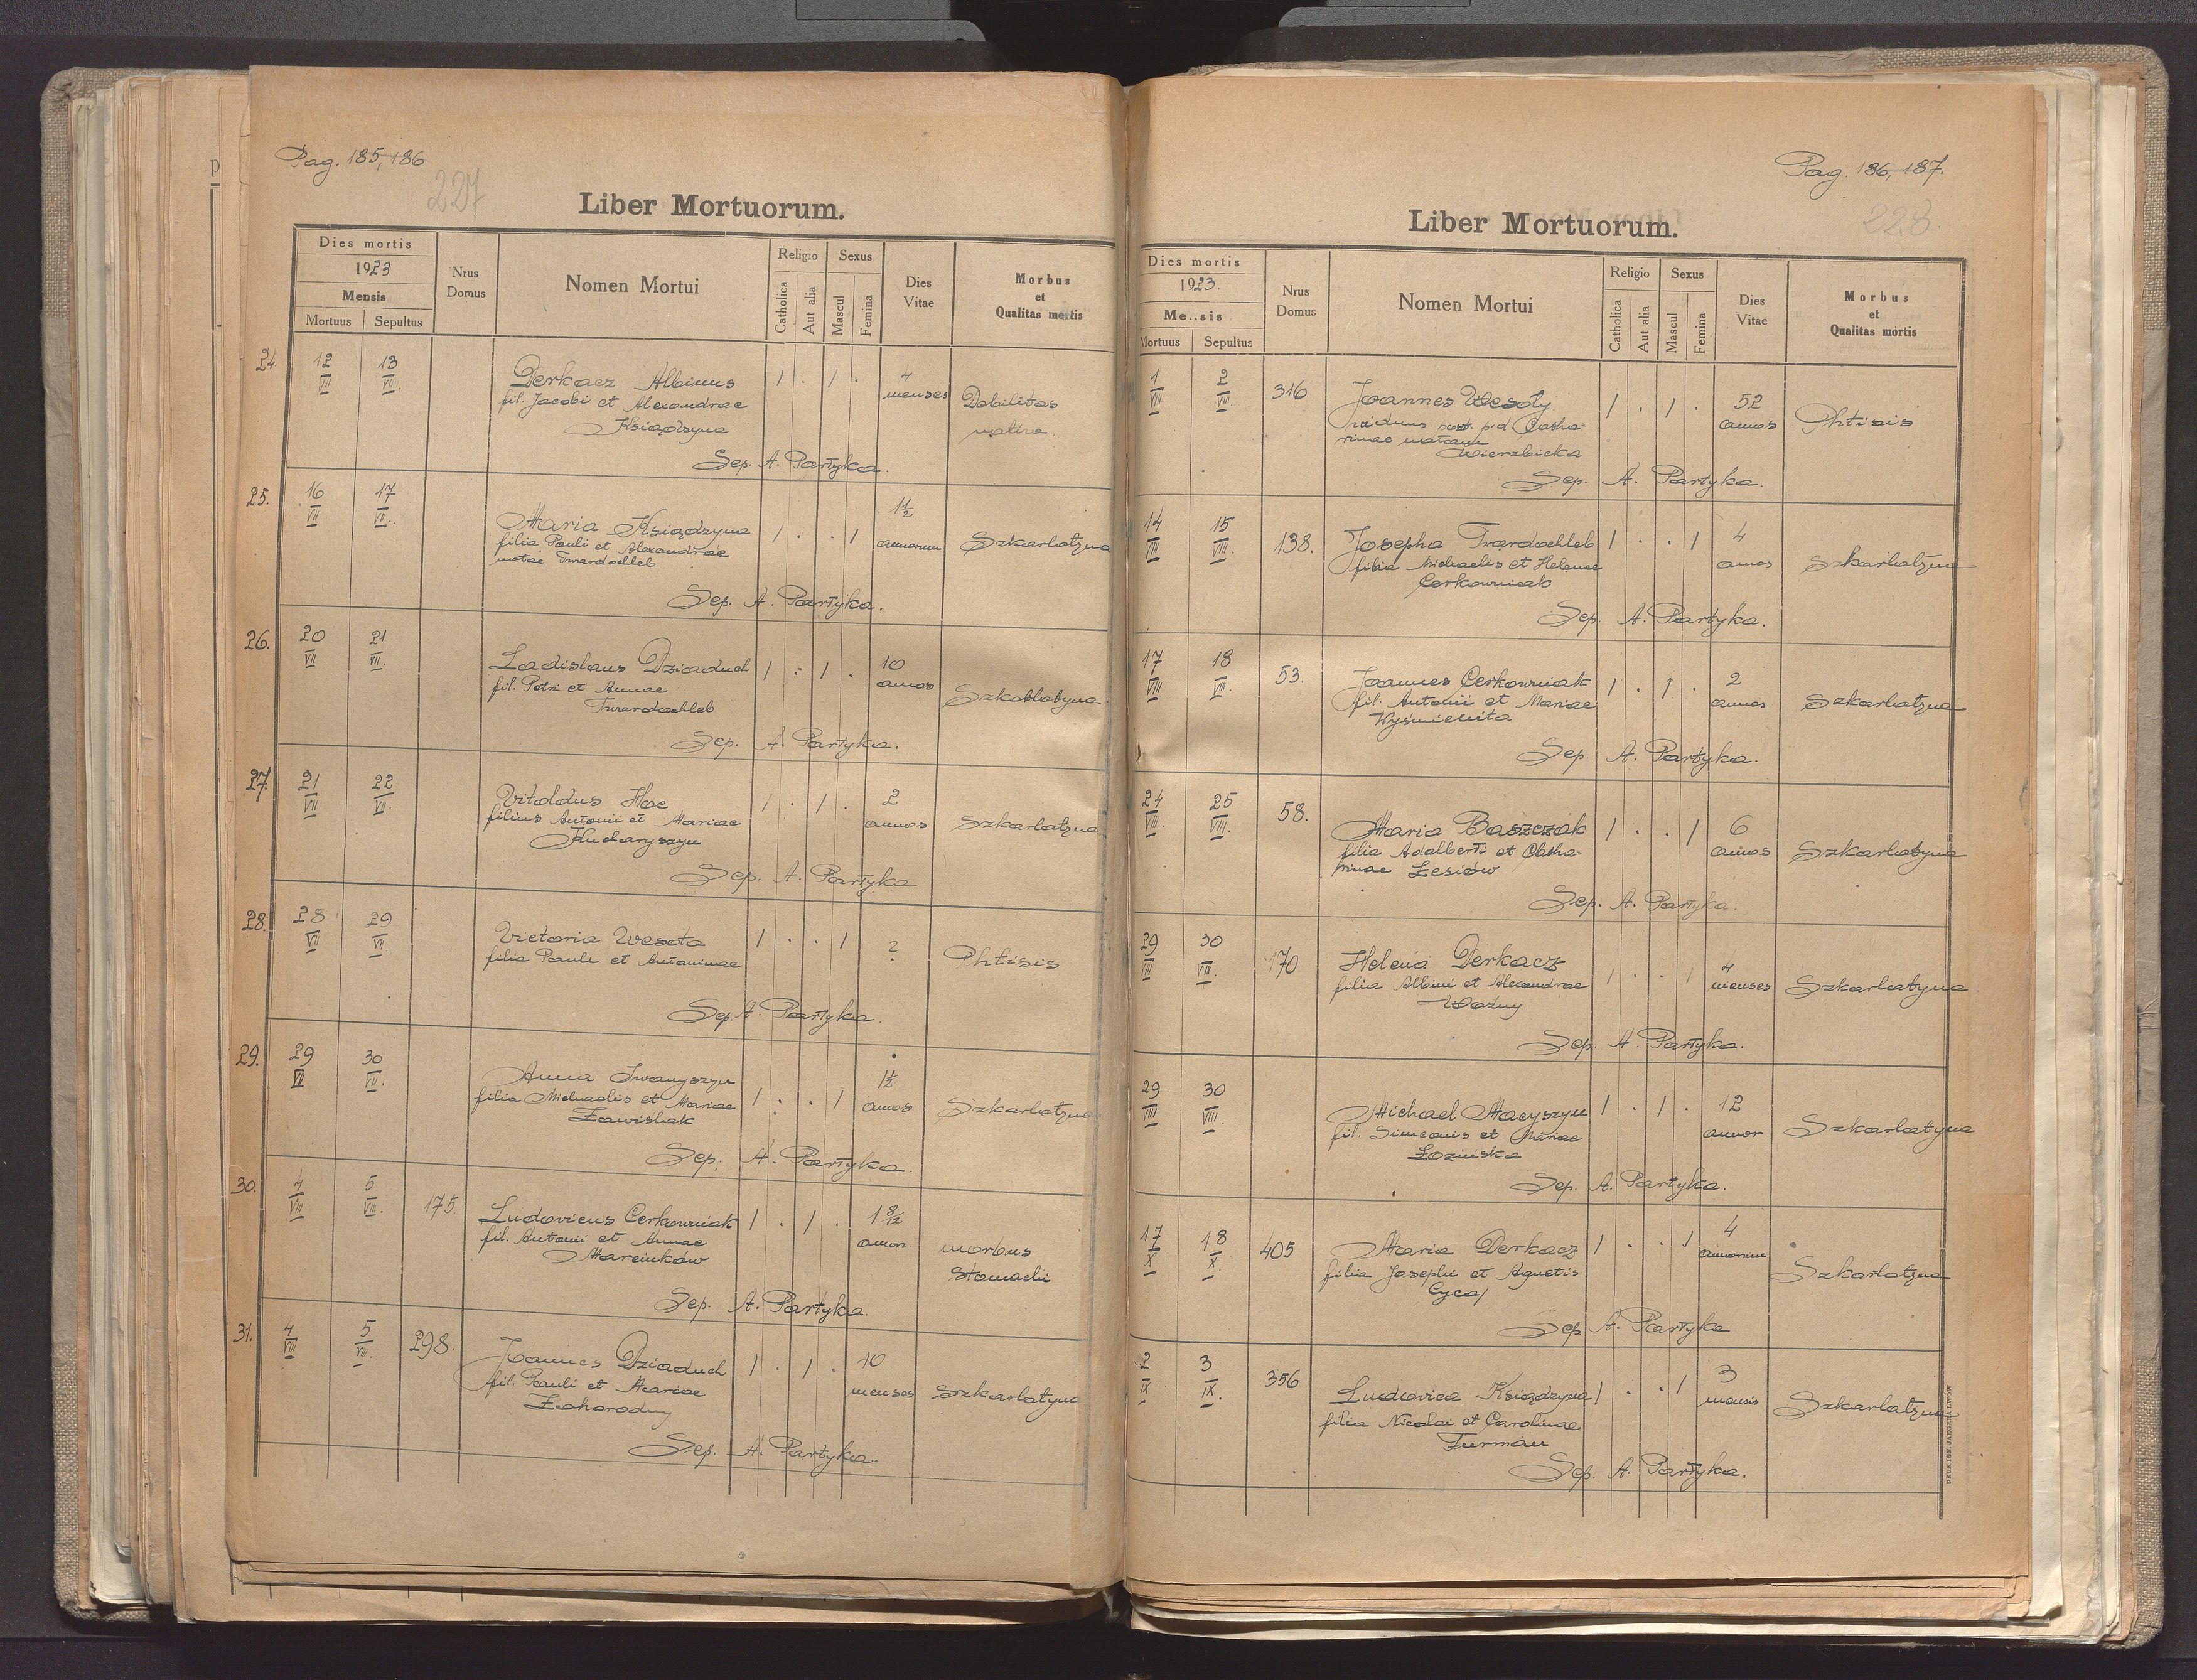 Pag. 185, 186
227
Liber Mortuorum.
Dies mortis
1923
Mensis
Mortuus Sepultus
Nrus
Domus
Nomen Mortui
Religio
Catholica
Aut alia
Sexus
Mascul
Femina
Dies
Vitae
Morbus
et
Qualitas mortis
24. 12/VII 13/VII. Derkacz Albinus 1 . 1 . 4 menses Debilitas
fil. Jacobi et Alexandrae
Książdzyna
Sep. A. Partyka.
25. 16/VII 17/VII. Maria Książdzyna 1 . . 1 1½ annorum Szkarlatyna
filia Pauli et Alexandrae
natae Twardochleb
Sep. A. Partyka.
26. 20/VII 21/VII. Ladislaus Dziaduch 1 . 1 . 10 annos Szkarlatyna
fil. Petri et Annae
Twardochleb
Sep. A. Partyka.
27. 21/VII 22/VII. Vitoldus Hoc 1 . 1 . 2 annos Szkarlatyna
filius Antonii et Mariae
Kucharyszyn
Sep. A. Partyka
28. 28/VII 29/VII. Victoria Wesoła 1 . . 1 ? Phtisis
filia Pauli et Antoninae
Sep. A. Partyka
29. 29/VII 30/VII. Anna Iwanyszyn 1 . . 1 1½ annos Szkarlatyna
filia Michaelis et Mariae
Zawiślak
Sep. A. Partyka.
30. 4/VIII 5/VIII. 175. Ludovicus Cerkowniak 1 . 1 . 1 8/12 annor. morbus
fil. Antonii et Annae stomachi
Marcinków
Sep. A. Partyka.
31. 4/VIII 5/VIII. 298. Joannes Dziaduch 1 . 1 . 10 menses Szkarlatyna
fil. Pauli et Mariae
Zahorodny
Sep. A. Partyka.
Pag. 186, 187.
228.
Liber Mortuorum.
Dies mortis
1923.
Mensis
Mortuus Sepultus
Nrus
Domus
Nomen Mortui
Religio
Catholica
Aut alia
Sexus
Mascul
Femina
Dies
Vitae
Morbus
et
Qualitas mortis
1/VIII 2/VIII 316 Joannes Wesoły 1 . 1 . 52 annos Phtisis
viduus post p.d Catha-
rinae natam
Wierzbicka
Sep. A. Partyka.
14/VIII 15/VIII. 138. Josepha Twardochleb 1 . . 1 4 annos Szkarlatyna
filia Michaelis et Helenae
Cerkowniak
Sep. A. Partyka.
17/VIII 18/VII. 53. Joannes Cerkowniak 1 . 1 . 2 annos Szkarlatyna
fil. Antonii et Mariae
Sep. A. Partyka.
24/VIII. 25/VIII. 58. Maria Baszczak 1 . . 1 6 annos Szkarlatyna
filia Adalberti et Catha-
rinae Łesiów
Sep. A. Partyka.
29/VIII 30/VII. 170 Helena Derkacz 1 . . 1 4 menses Szkarlatyna
filia Albini et Alexandrae
Wozny
Sep. A. Partyka.
29/VIII 30/VIII. Michael Macyszyn 1 . 1 . 12 annor Szkarlatyna
fil. Simeonis et Mariae
Łozińska
Sep. A. Partyka.
17/X 18/X. 405 Maria Derkacz 1 . . 1 4 annorum Szkarlatyna
filia Josephi et Agnetis
Cycaj
Sep A. Partyka
2/IX 3/IX. 356 Ludovica Książdzyna 1 . . 1 3 mensis Szkarlatyna
filia Nicolai et Carolinae
Furman
Sep. A. Partyka.
DRUK IGN. JAEGERA LWÓW